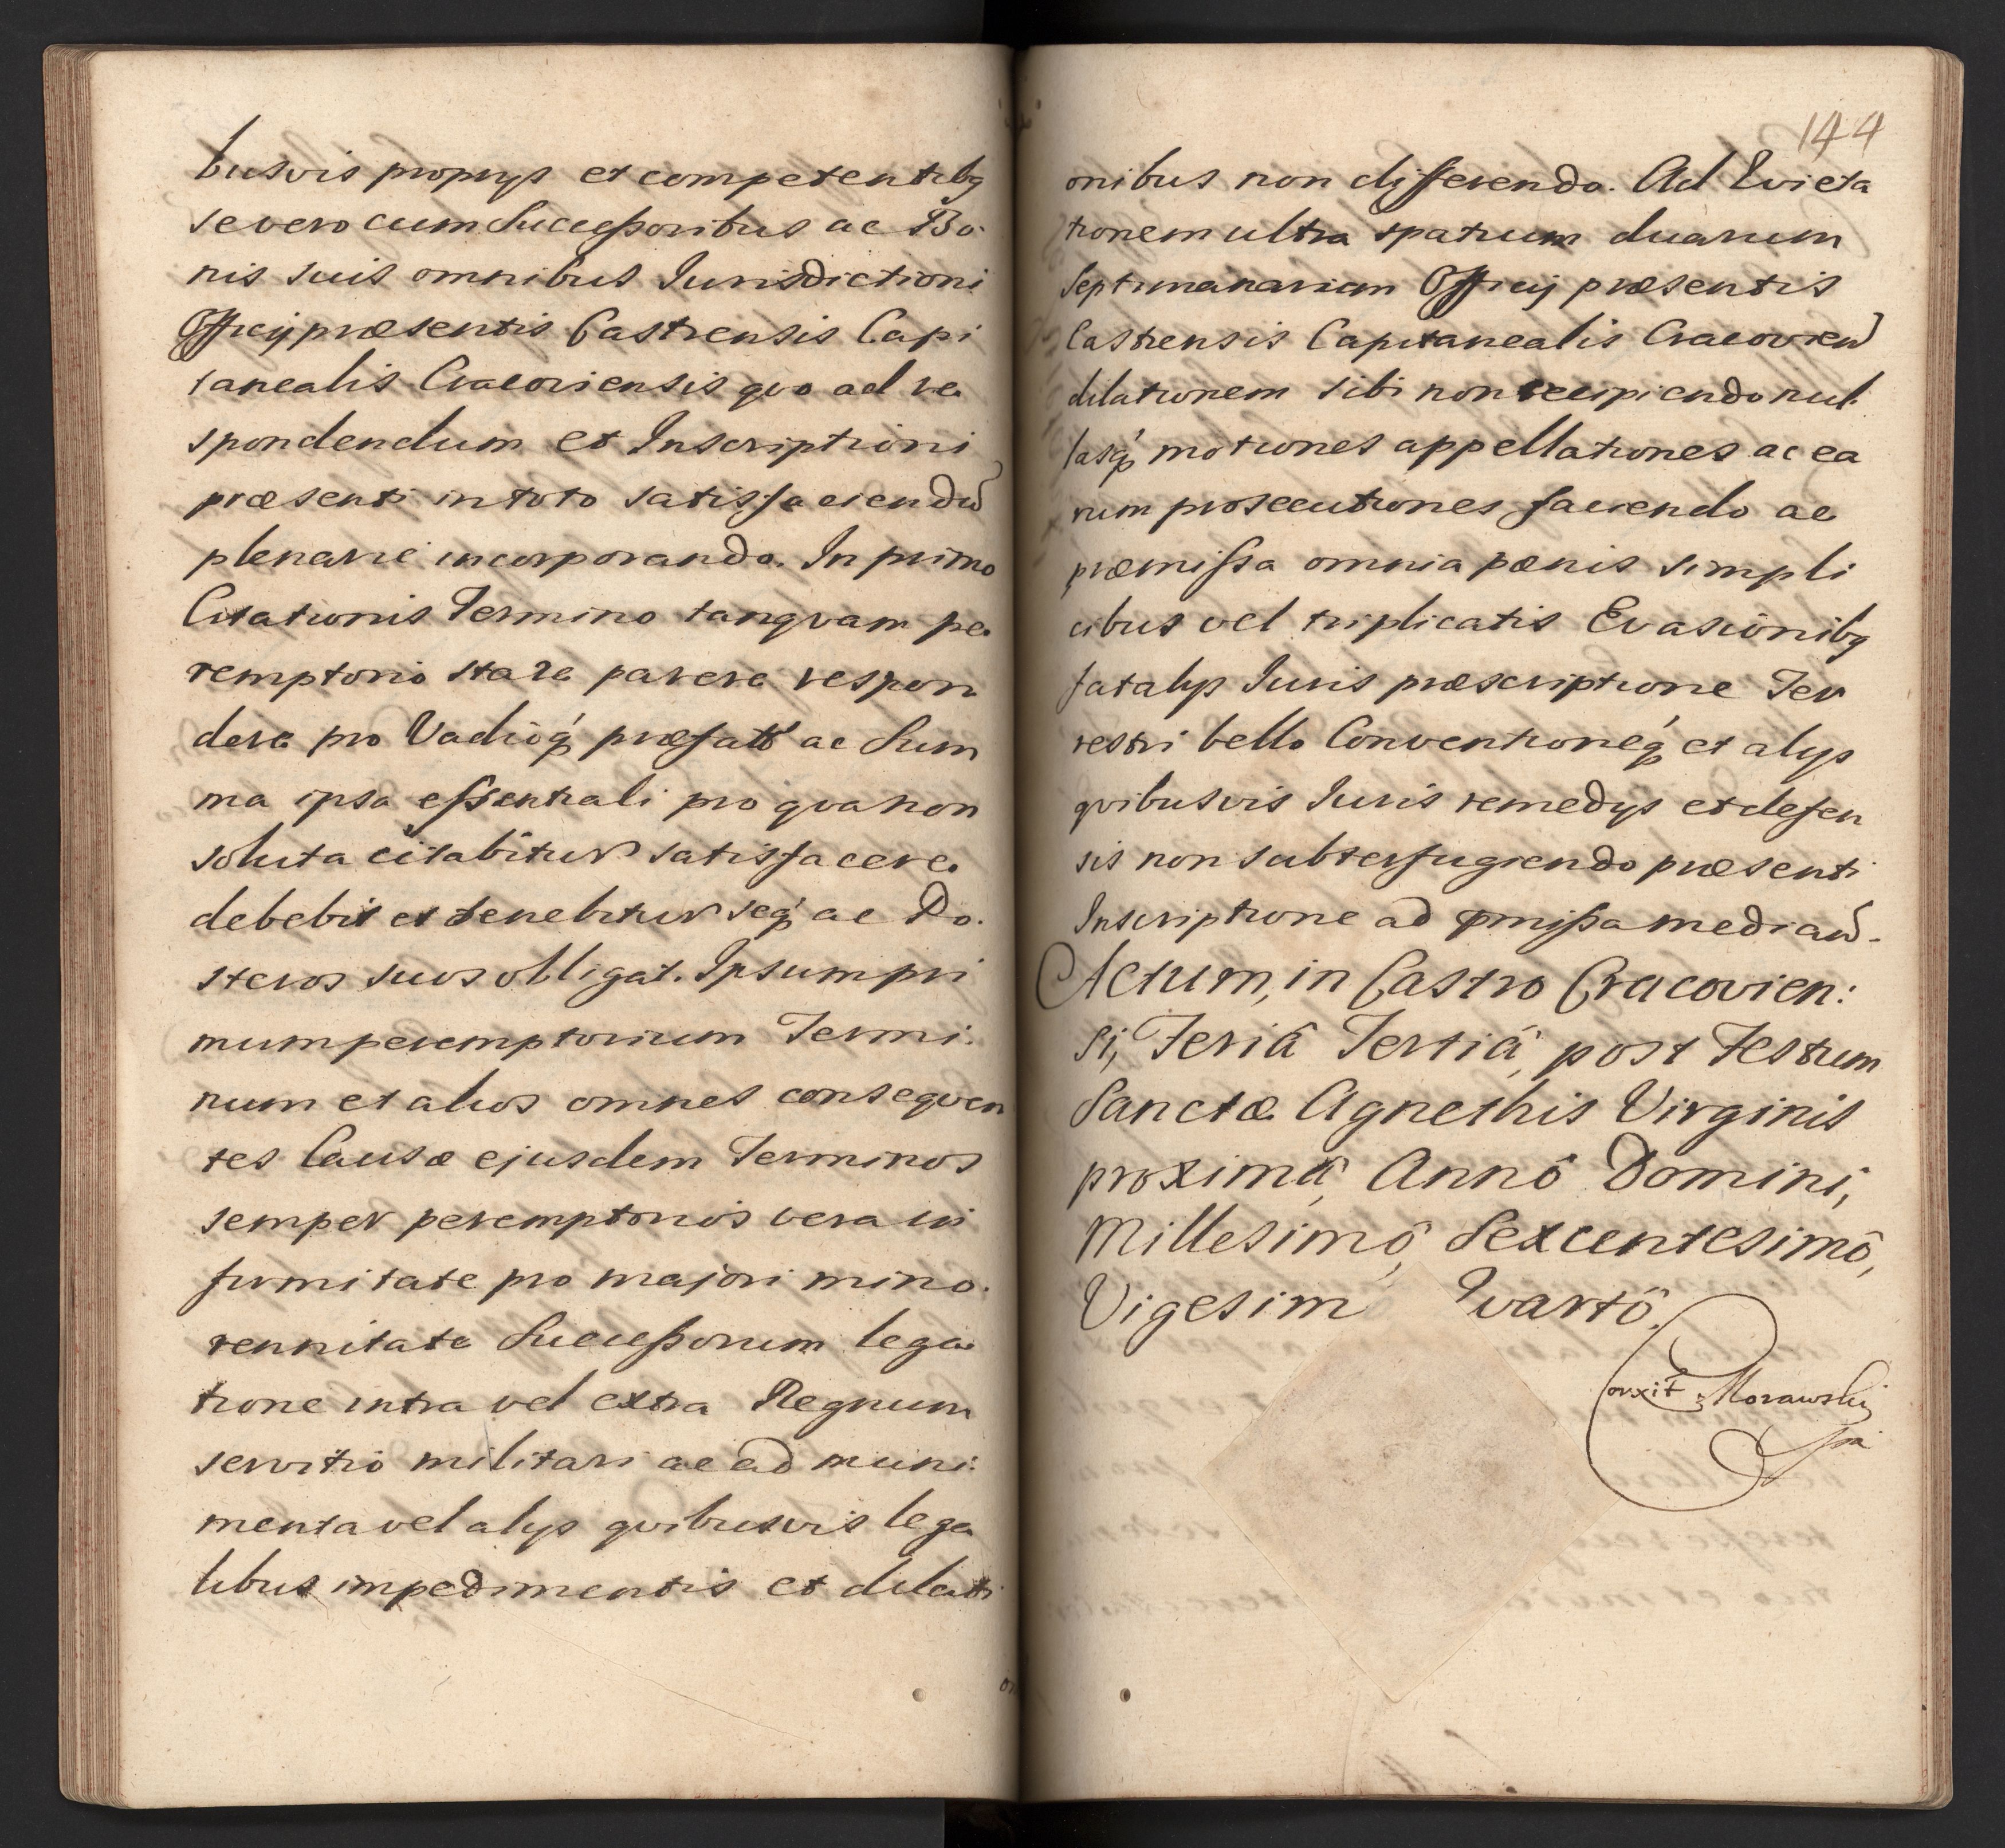 busvis proprys et competentibq
se vero cum Successoribus ac Bo
nis suis omnibus Iurisdictioni
Officij præsentis Castrensis Capi
tanealis Cracoviensis qvo ad re
spondendum et Inscriptioni
præsenti in toto satisfaciendũ
plenarie incorporando. In primo
Citationis Termino tanqvam pe
remptorio stare parere respon
dere pro Vadioq́ præfato ac Sum
ma ipsa essentiali pro qva non
soluta citabitur satisfacere
debebit et tenebitur seq́ ac Po.
steros suos obligat. Ipsum pri
mum peremptorium Termi.
num et alios omnes conseqven
tes Causæ ejusdem Terminos
semper peremptorios vera in
firmitate pro majori mino.
rennitate Successorum lega
tione intra vel extra Regnum
servitio militari ac ad muni.
menta vel alys qvibusvis lega
libus impedimentis et dilati
144
onibus non differendo. Ad Evicta
tionem ultra spatium duarum
Septimanarum Officij præsentis
Castrensis Capitanealis Cracovien
dilationem sibi non recipiendo nul
lasq́ motiones appellationes ac ea
rum prosecutiones faciendo ac
præmissa omnia pœnis simpli
cibus vel triplicatis Evasionibq
fatalys Iuris præscriptione Ter
restri bello Conventioneq́ et alys
qvibusvis Iuris remedys et defen
sis non subterfugiendo præsenti
Inscriptione ad pmissa median̄.
Actum, in Castro Cracovien:
si, Feriâ Tertiâ, post Festum
Sanctæ Agnethis Virginis
proximâ, Annô Domini,
Millesimô, Sexcentesimô,
Vigesim Qvartô.
Corxit Morawski